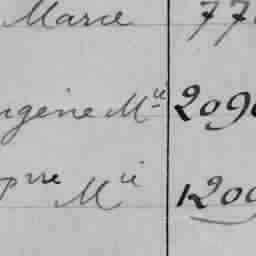 Marie 77
ugène Mie 209
Pre Mie 1209